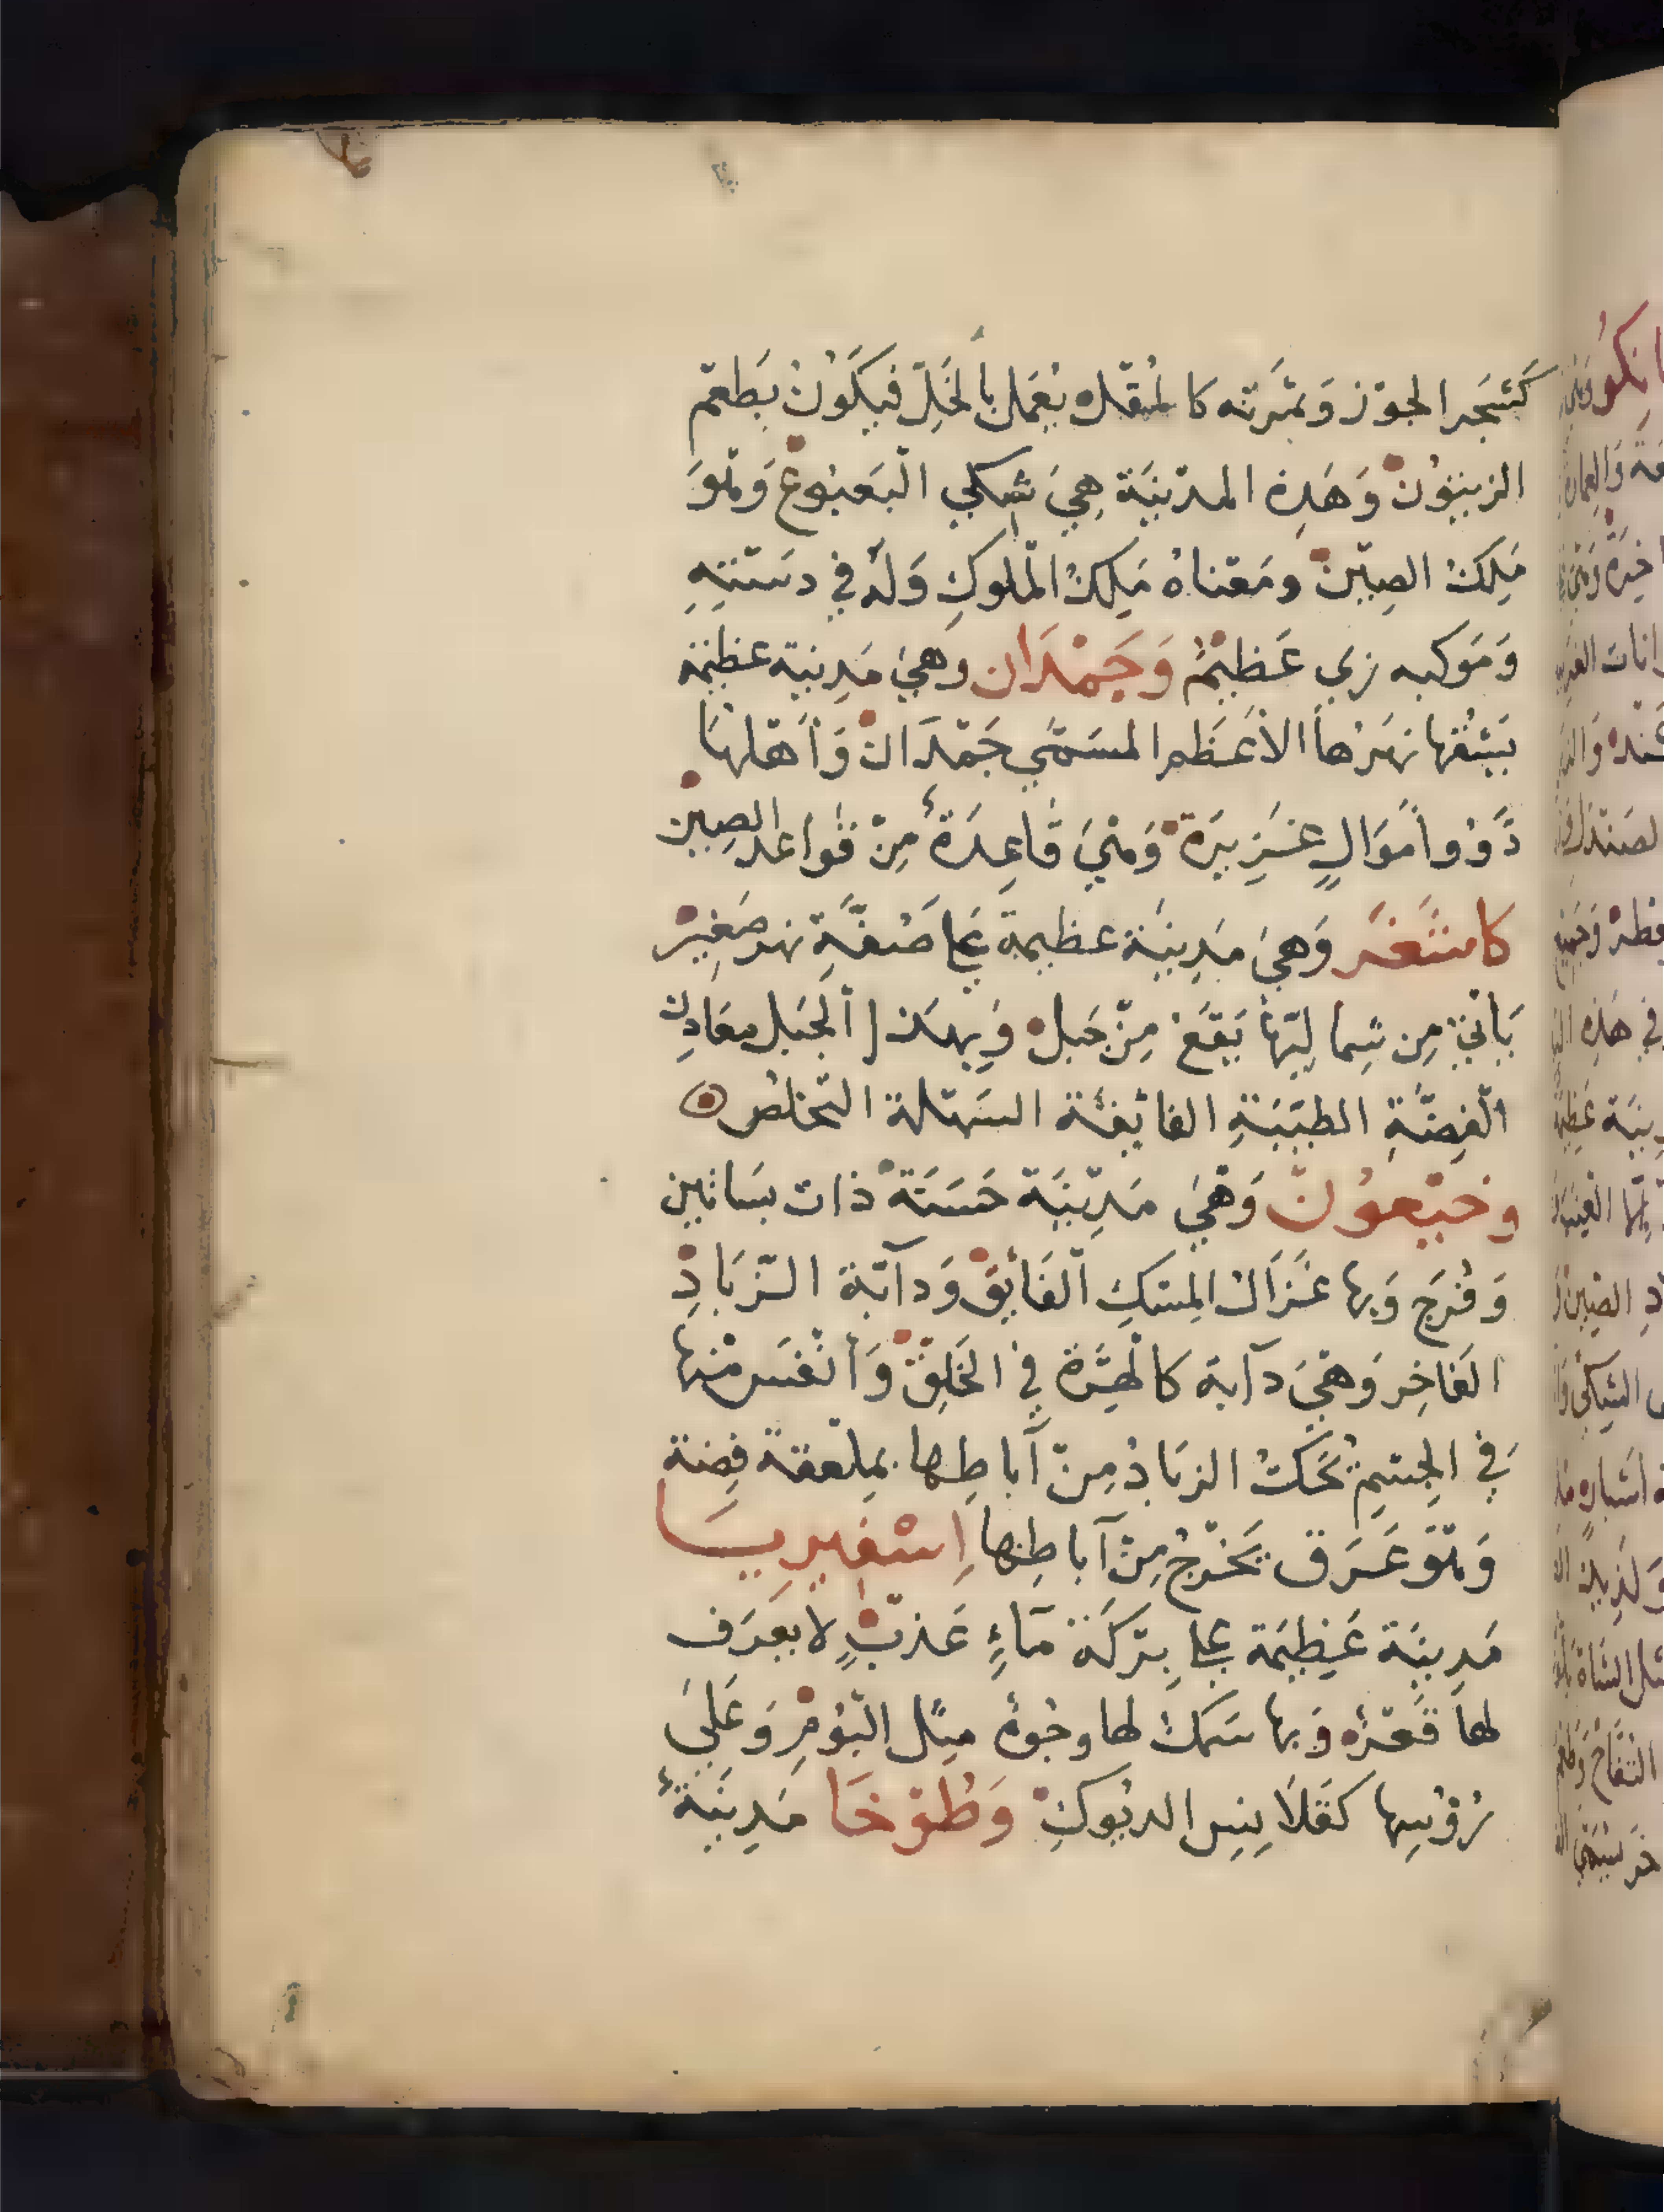 كَشَجَر الجوْز وَثمَرَته كالمُقله يُعمَل بالخَلّ فيَكُونُ بَطعْم
الزيتوُن وَهَذِهِ المدْينَة هِيَ سُكني البَغبُوغ وَهْوَ
مَلِكُ الصِيْن ومَعْناهُ مَلِكُ المْلوكِ وَلهُ في دسْتِهِ
وَمَوكبه زي عَظيمُ وَجَمْدَان وَهيَ مَدينة عظيمة
يَشُقها نهرُها الأعَظم المسَمّي جَمْدَان وَأهْلهَا
ذَوُو أمَوَالٍ غَزِيرَة وَهْيَ قَاعِدَةُ مِنْ قوَاعد الصِين
كاشغَر وَهيَ مَدِينَة عظيمة عَلي ضفَّةِ نهر صَغِيْر
يَأتيْ مِن شِماليّهَا يَقعَ مِنْ جَبل وَبهذا الجبَل معَادِن
الفِضَّةِ الطيّبَةِ الفايقَة السَهْلة التخلص
وخيْعوُن وَهْيَ مَدِيْنَة حَسَنَة ذات بسَاتين
وَفُرَج وَبها غَزَال المِسْكِ الفَايَق وَدآبّة الزَّبَادِ
الفَاخِر وَهْيَ دآبة كالهِرَّة في الخَلِقْ وَأنفَس منها
في الجِسْمِ يُحَكُ الزبَادُ مِنْ آباطِها بمِلْعقة فِضة
وَهْوَ عَرَق يَخْرُجُ مِنْ آباطِها إسْفيرِيَا
مَدِينَة عَظِيَمة عَلي بِرْكَة مَآءٍ عَذبٍ لا يعرَف
لها قَعْرُه وَبها سَمَك لها وجُوهُ مثل البُوْمِ وَعَلىَ
رُؤُسِها كقَلاَنِيِس الديُوكِ وَطُوْخَا مَدِينَةُ